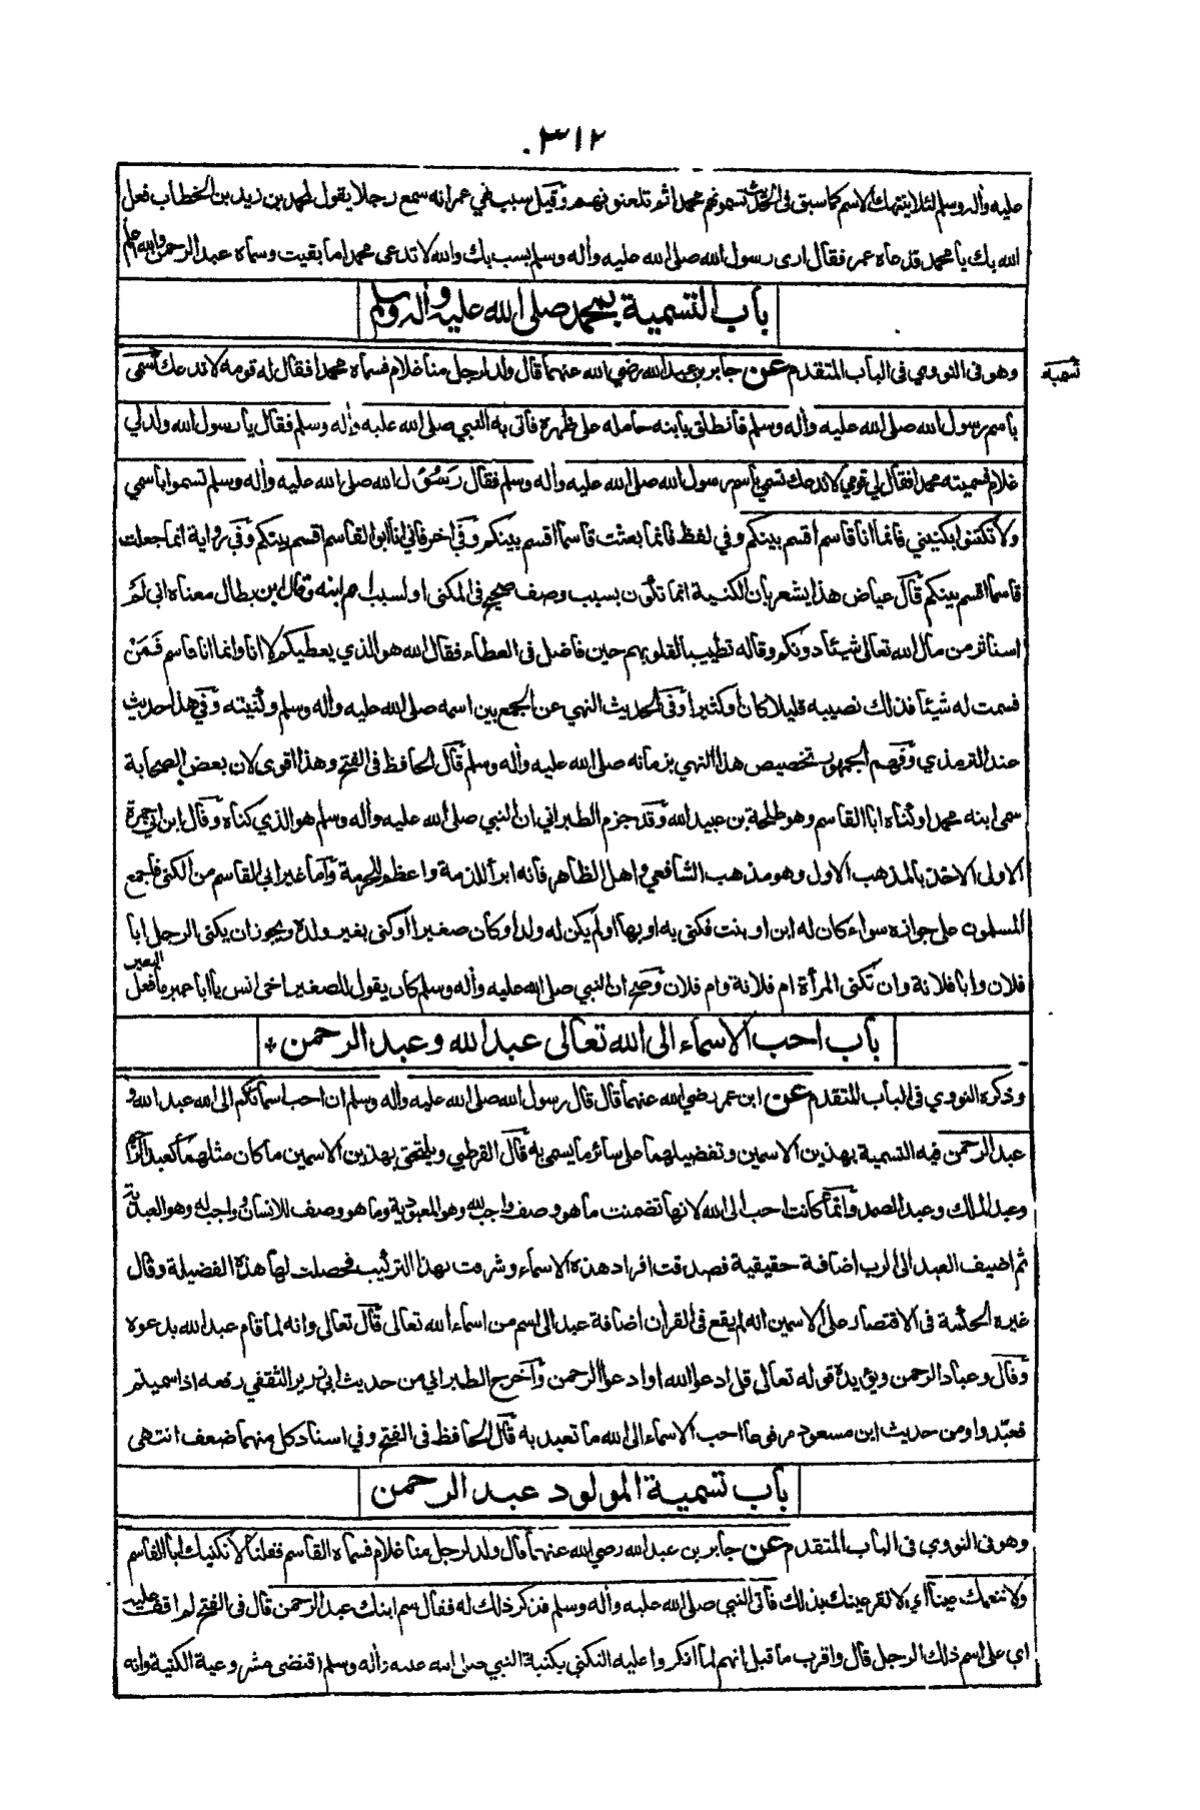 ٣١٢
عليه وأله وسلم لئلا ينتهك الاسم كما سبق فى الحديث تسمونهم محمدا ثم تلعنونهم وقيل سبب نهي عمر انه سمع رجلا يقول لمحمد بن زيد بن الخطاب فعل
الله بك يا محمد فدعاه عمر فقال ارى رسول الله صلى الله عليه وأله وسلم يسب بك والله لا تدعى محمدا ما بقيت وسماه عبد الرحمن والله اعلم
باب التسمية بمحمد صلى الله عليه وأله وسلم
وهو فى النووي فى الباب المتقدم عن جابر بن عبد الله رضي الله عنهما قال ولد لرجل منا غلام فسماه محمدا فقال له قومه لا ندعك تسمى
تسميه
باسم رسول الله صلى الله عليه وأله وسلم فانطلق بابنه حامله على ظهره فأتى به النبي صلى الله عليه وأله وسلم فقال يا رسول الله ولد لي
غلام فسميته محمدا فقال لي قومي لا ندعك تسمي باسم رسول الله صلى الله عليه وأله وسلم فقال رسول الله صلى الله عليه وأله وسلم تسموا باسمي
ولا تكتنوا بكنيتي فانما انا قاسم اقسم بينكم وفي لفظ فانما بعثت قاسما اقسم بينكم وفي اخر فاني انا ابو القاسم اقسم بينكم وفي رواية انما جعلت
قاسما اقسم بينكم قال عياض هذا يشعر بان الكنية انما تكون بسبب وصف صحيح فى المكنى او لسبب اسم ابنه وقال ابن بطال معناه اني لم
استأثر من مال الله تعالى شيئا دونكم وقاله تطييبا لقلوبهم حين فاضل فى العطاء فقال الله هو الذي يعطيكم لا انا وانما انا قاسم فمن
قسمت له شيئا فذلك نصيبه قليلا كان او كثيرا وفى الحديث النهي عن الجمع بين اسمه صلى الله عليه وأله وسلم وكنيته وفي هذا حديث
عند الترمذي وفهم الجمهور تخصيص هذا النهي بزمانه صلى الله عليه وأله وسلم قال الحافظ فى الفتح وهذا اقوى لان بعض الصحابة
سمى ابنه محمدا وكناه ابا القاسم وهو طلحة بن عبيد الله وقد جزم الطبراني ان النبي صلى الله عليه وأله وسلم هو الذي كناه وقال ابن ابي جمرة
الاولى الاخذ بالمذهب الاول وهو مذهب الشافعي واهل الظاهر فانه ابرأ للذمة واعظم للحرمة وأما غير ابي القاسم من الكنى فاجمع
المسلمون على جوازه سواء كان له ابن او بنت فكنى به او بها او لم يكن له ولد او كان صغيرا او كنى بغير ولده ويجوز ان يكنى الرجل ابا
فلان وابا فلانة وان تكنى المرأة ام فلانة وام فلان وصح ان النبي صلى الله عليه وأله وسلم كان يقول للصغير اخي انس يا ابا عمير ما فعل النغير
باب احب الاسماء الى الله تعالى عبد الله وعبد الرحمن *
وذكره النووي فى الباب المتقدم عن ابن عمر رضي الله عنهما قال قال رسول الله صلى الله عليه وأله وسلم ان احب اسمائكم الى الله عبد الله و
عبد الرحمن فيه التسمية بهذين الاسمين وتفضيلهما على سائر ما يسمى به قال القرطبي ويلتحق بهذين الاسمين ما كان مثلهما كعبد الرحيم
وعبد الملك وعبد الصمد وانما كانت احب الى الله لانها تضمنت ما هو وصف واجب لله وهو المعبودية وما هو وصف للانسان وواجب له وهو العبودية
ثم اضيف العبد الى الرب اضافة حقيقية فصدقت افراد هذه الاسماء وشرفت بهذا التركيب فحصلت لها هذه الفضيلة وقال
غيره الحكمة فى الاقتصار على الاسمين انه لم يقع فى القرأن اضافة عبد الى اسم من اسماء الله تعالى قال تعالى وانه لما قام عبد الله يدعوه
وقال وعباد الرحمن ويؤيده قوله تعالى قل ادعوا الله او ادعوا الرحمن وأخرج الطبراني من حديث ابي زهير الثقفي رفعه اذا سميتم
فعبدوا ومن حديث ابن مسعود مرفوعا احب الاسماء الى الله ما تعبد به قال الحافظ فى الفتح وفي اسناد كل منهما ضعف انتهى
باب تسمية المولود عبد الرحمن
وهو فى النووي فى الباب المتقدم عن جابر بن عبد الله رضي الله عنهما قال ولد لرجل منا غلام فسماه القاسم فقلنا لا نكنيك ابا القاسم
ولا ننعمك عينا اي لا نقر عينك بذلك فأتى النبي صلى الله عليه وأله وسلم فذكر ذلك له فقال سم ابنك عبد الرحمن قال فى الفتح لم اقف عليه
اي على اسم ذلك الرجل قال واقرب ما قبل انهم لما انكروا عليه التكني بكنية النبي صلى الله عليه وأله وسلم اقتضى مشروعية الكنية وانه